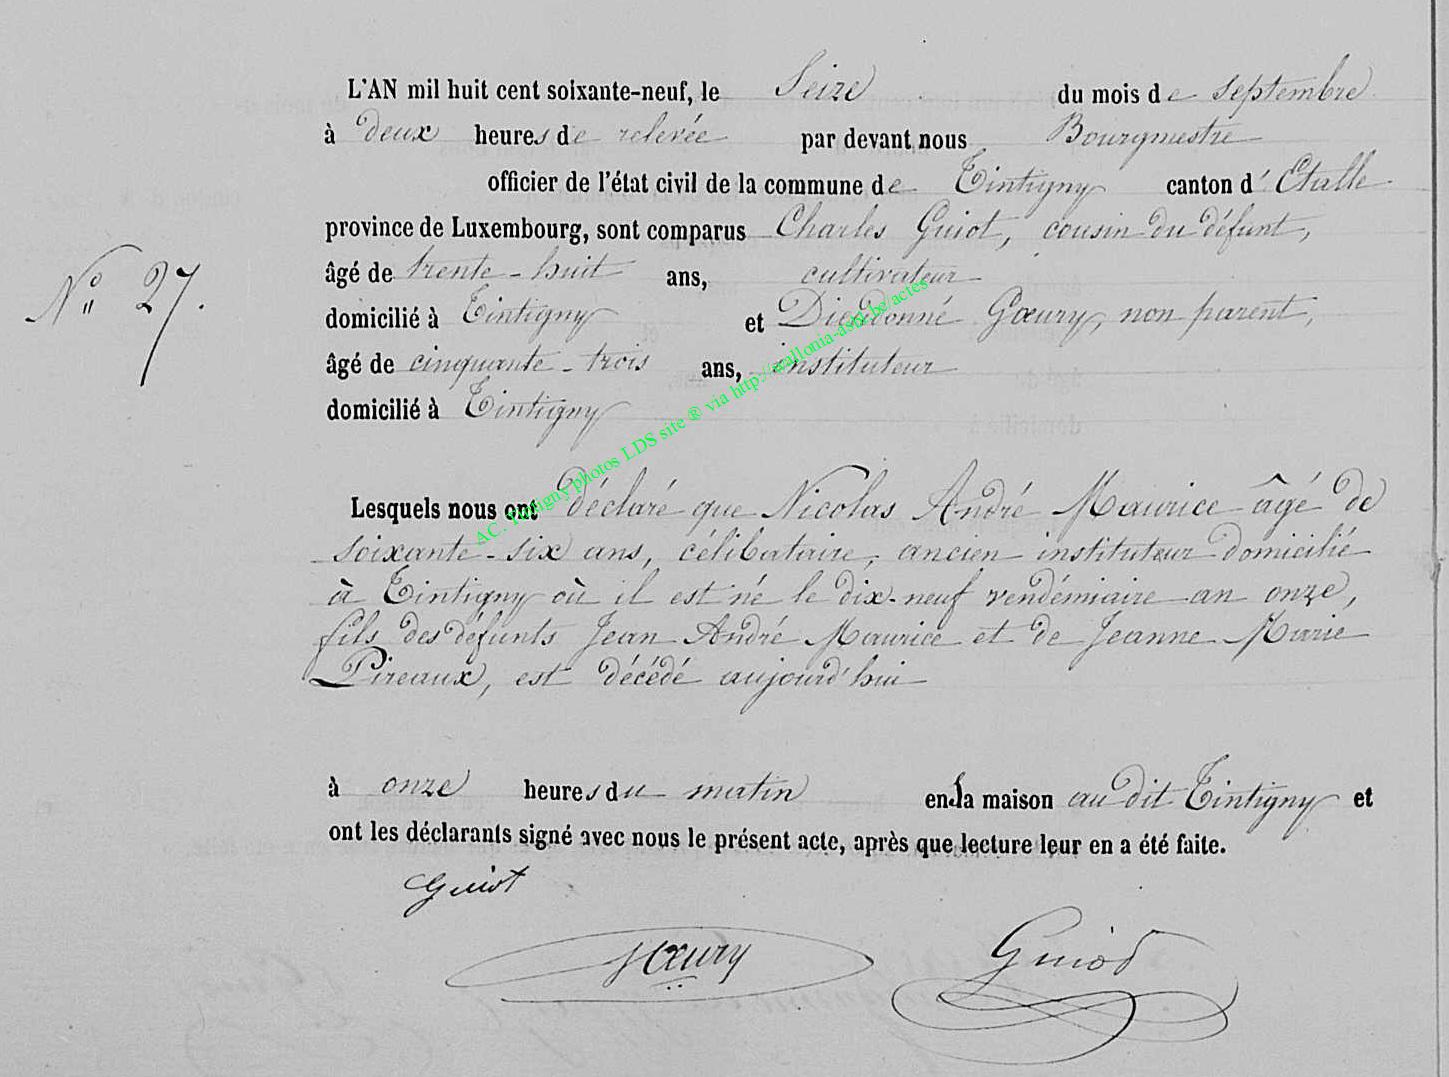 L'AN mil huit cent soixante-neuf, le Seize du mois de septembre
à deux heures de relevée par devant nous Bourgmestre
officier de l'état civil de la commune de Tintigny canton d' Etalle
province de Luxembourg, sont comparus Charles Guiot, cousin du défunt,
N° 27.
âgé de trente-huit ans, cultivateur
domicilié à Tintigny et Dieudonné Gœury, non parent,
âgé de cinquante-trois ans, instituteur
domicilié à Tintigny
AC. Tintigny photos LDS site ® via http://wallonia-asbl.be/actes
Lesquels nous ont déclaré que Nicolas André Maurice âgé de
soixante-six ans, célibataire, ancien instituteur domicilié
à Tintigny où il est né le dix-neuf vendémiaire an onze,
fils des défunts Jean André Maurice et de Jeanne Marie
Pireaux, est décédé aujourd'hui
à onze heures du matin en la maison au dit Tintigny et
ont les déclarants signé avec nous le présent acte, après que lecture leur en a été faite.
Guiot
Gœury Guiot